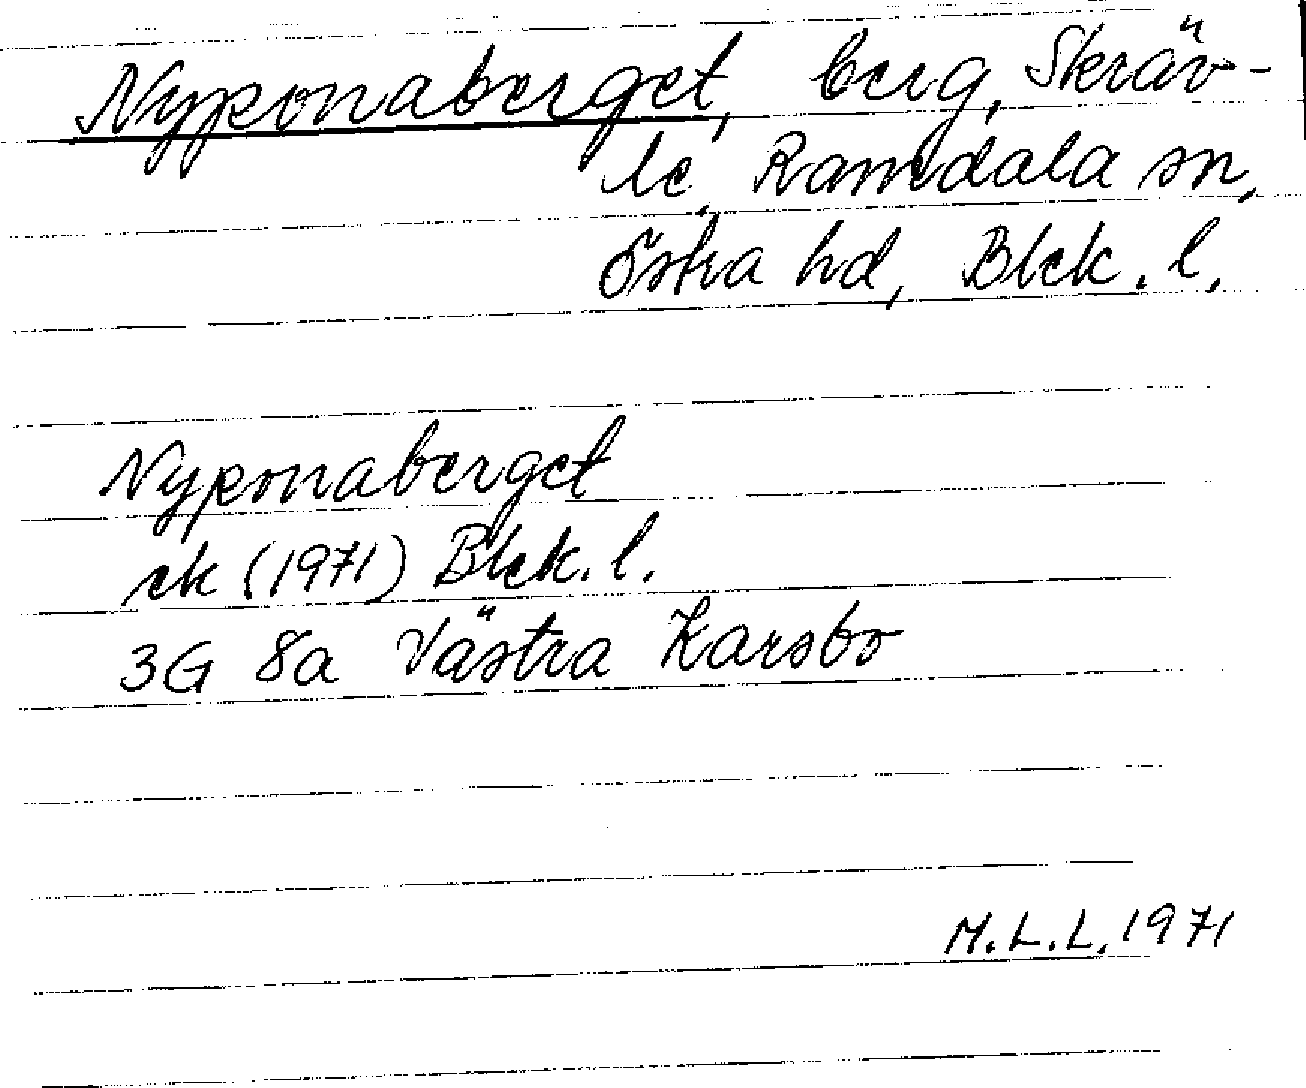 Nyponaberget, berg, Skräv-
le, Ramdala sn,
Östra hd, Blek. l.
Nyponaberget
ek (1971) Blek. l.
3G 8a Västra Karsbo
M.L.L. 1971